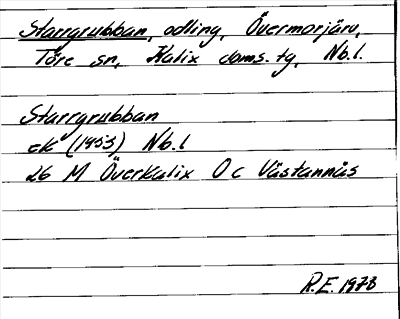 Starrgrubban, odling, Övermorjärv,
Töre sn, Kalix doms. tg, Nb.l.
Starrgrubban
ek (1953) Nb.l
26 M Överkalix O c Västannås
R.E. 1973